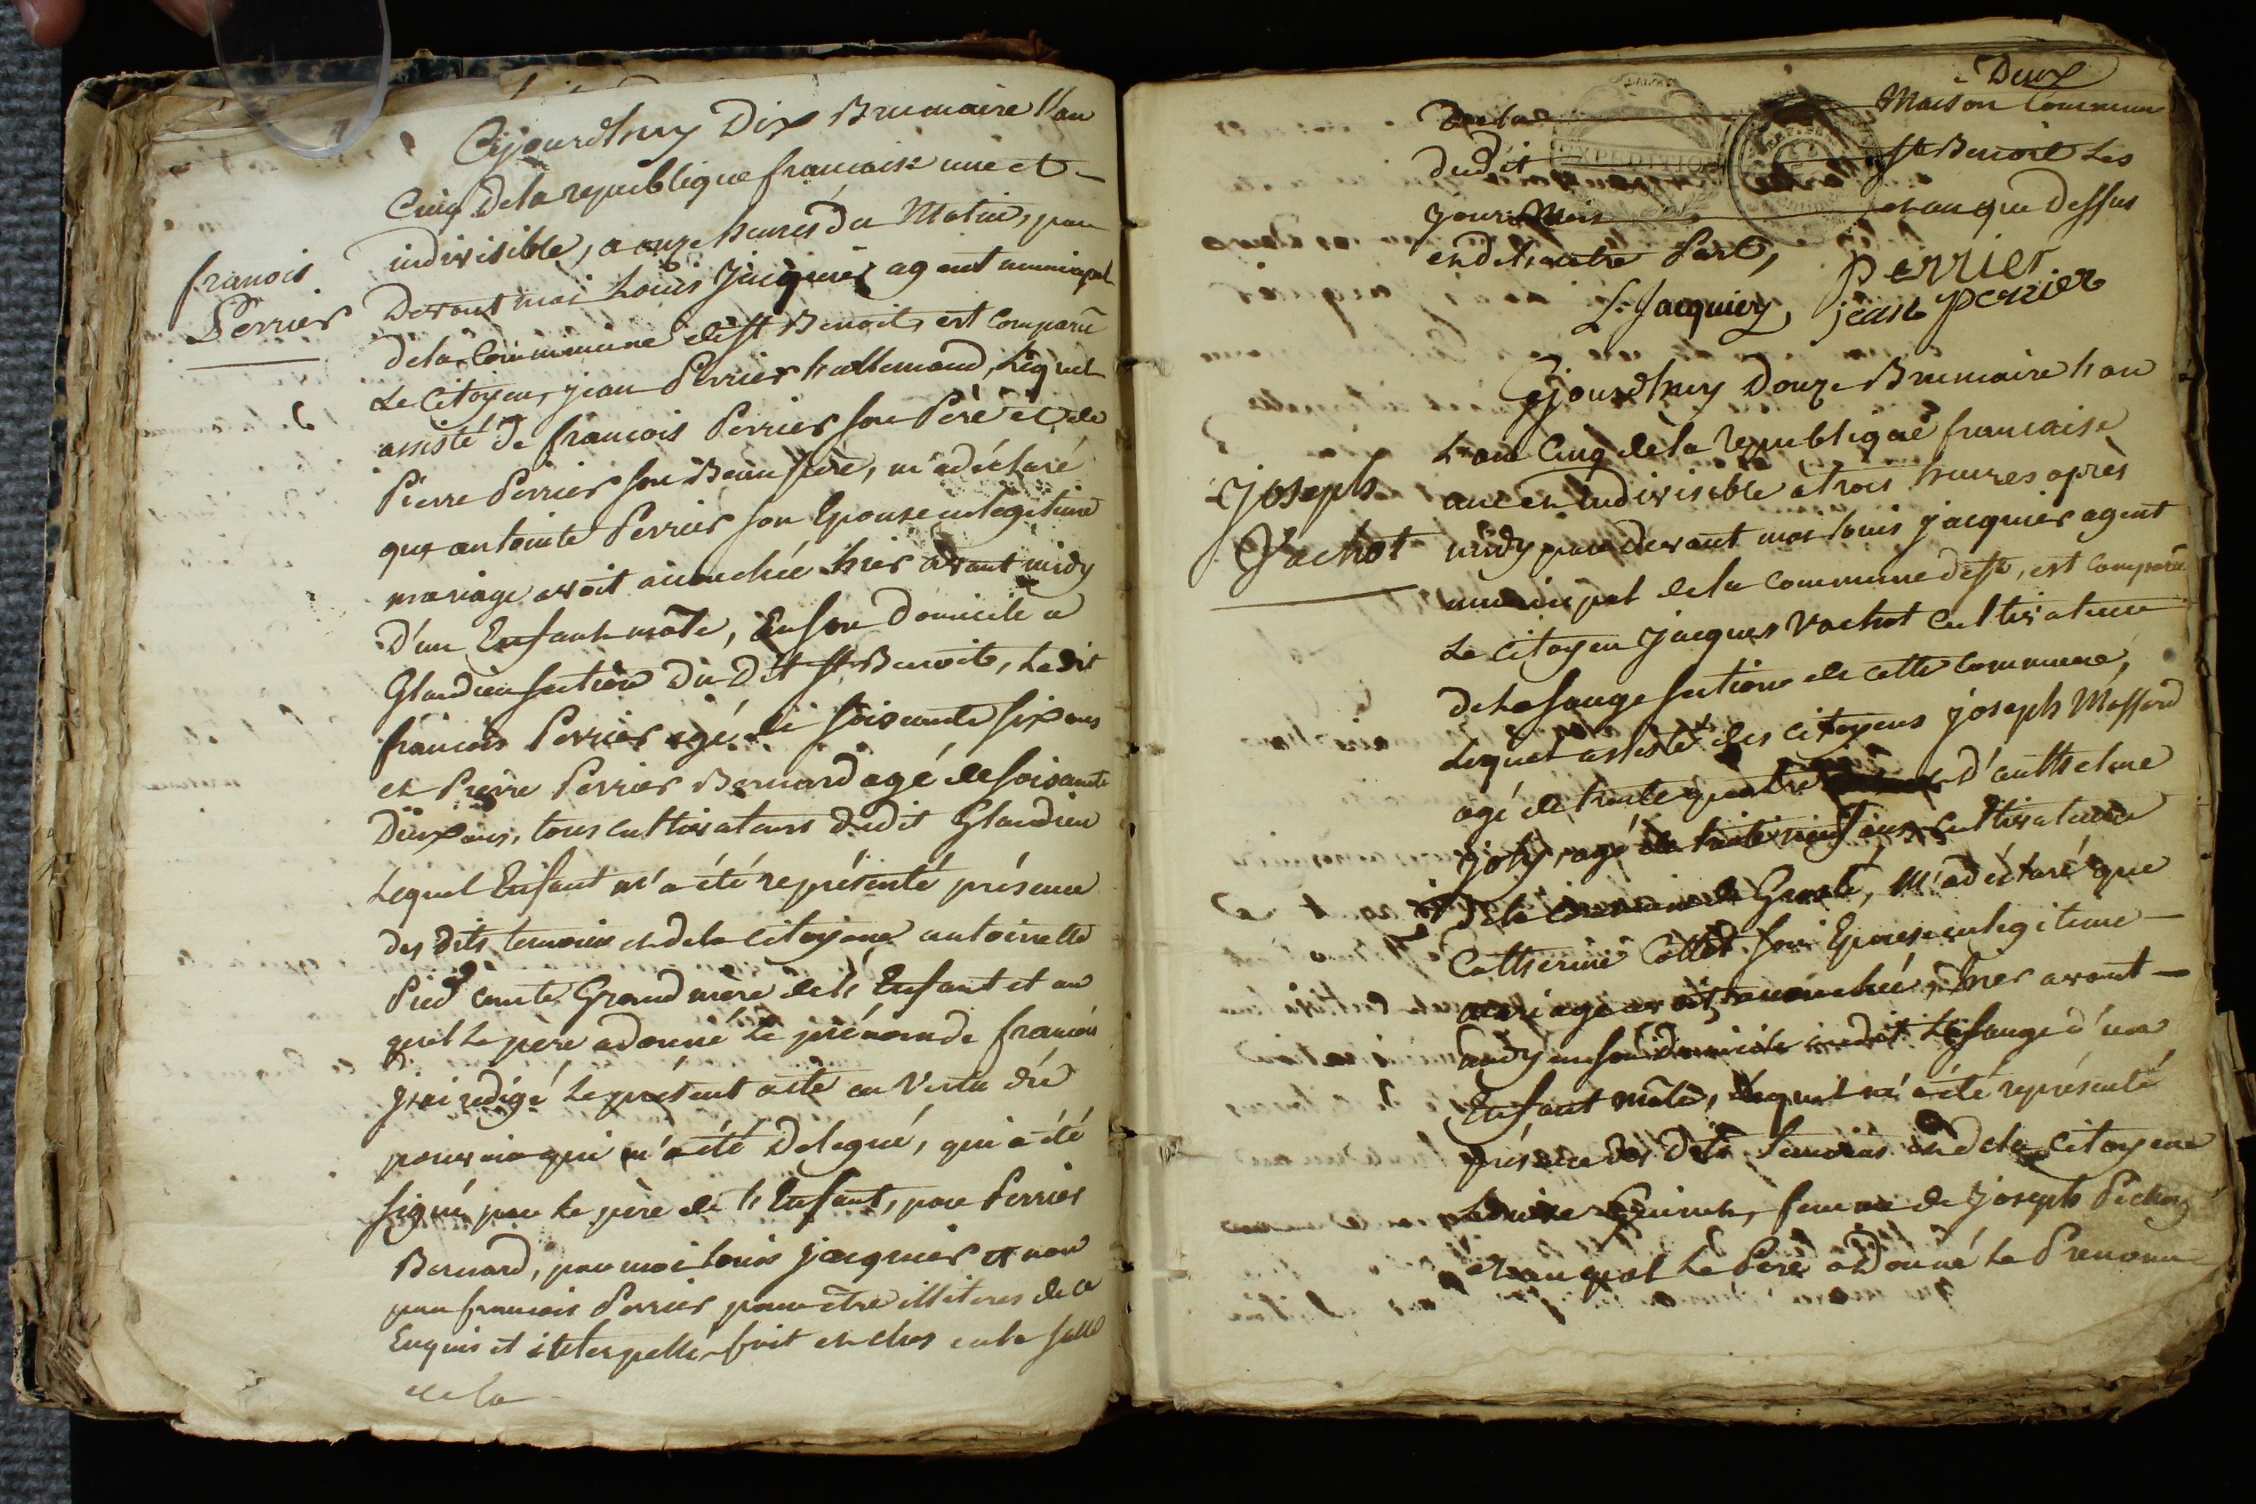 françois
Perrier
Cejourdhuy Dix Brumaire l'an
Cinq de la republique francaise une et
indivisible, a onze heures du Matin, par
Devant moi Louis Jacquier agent municipal
de la Commune de St Benoit, est comparu
Le Citoyen jean Perrier Lallemand, Lequel
assisté de francois Perrier son Père et de
Pierre Perrier son Beau père, m'a déclaré
que antointe Perrier son Epouse en legitime
mariage avoit accouchée hier avant midy
D'un Enfant mâle, En son Domicile a
Glandieu section Du Dit St Benoit, Ledit
francois Perrier agé de soixante six ans
et Pierre Perrier Bernard agé de soixante
Deux ans, tous cultivateurs dudit Glandieu
Lequel Enfant m'a été représenté présence
des dits temoins et de la citoyene antoinette
Pied Grand mère de l'Enfant et au
quel Le père a donné Le prénom de francois
J'ai redigé Le présent acte en Vertu des
pouvoirs qui m'a été Delegué, qui a été
signé par Le père de l'Enfant, par Perrier
Bernard, par moi Louis Jacquier et non
par francois Perrier pour être illiteres de ce
Enquis et interpellé, fait et clos en la salle
de la
Deux
de la Maison Commune
dudit St Benoit Les
jour Mois et an que Dessus
et D'autre Part,
L. Jacquier, Perrier
jean perrier
Joseph
Vachot
Cejourdhuy Douze Brumaire l'an
L'an Cinq de la republique francaise
une et indivisible à trois heures après
midy par devant moi Louis jacquier agent
municipal de la commune de St , est comparu
Le citoyen Jacques Vachot Cultivateur
de Lesange section de cette Commune,
Lequel assisté des citoyens joseph
agé de trente quatre d'anthelme
joly, agé de trente neuf ans Cultivateur
de la Commune de , M'a déclaré que
Catherine Collet son Epouse en legitime
mariage avoit accouchée, hier avant
midy en son Domicile audit Lesange d'un
Enfant mâle, Lequel m'a été représenté
présence des Dits temoins et de la Citoyene
 femme de Joseph
et auquel Le Père a Donné Le Prenom